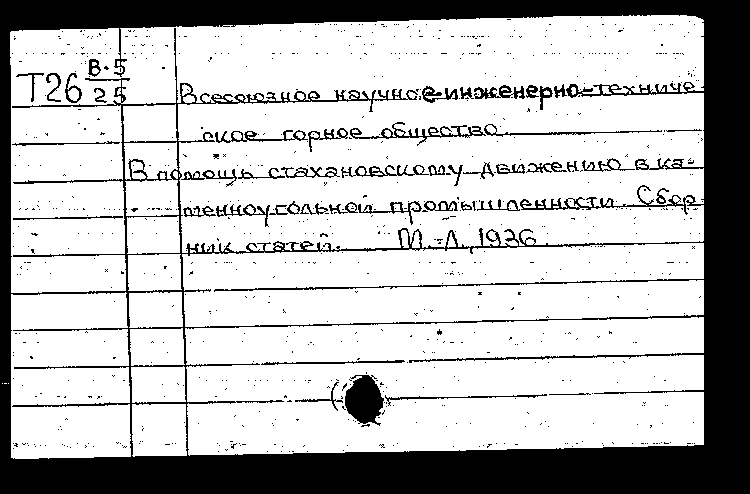 Т26 В-5
25
Всесоюзное научное-инженерно-техниче-
ское горное общество.
В помощь стахановскому движению в ка-
менноугольной промышленности. Сбор-
ник статей. М.-Л., 1936.